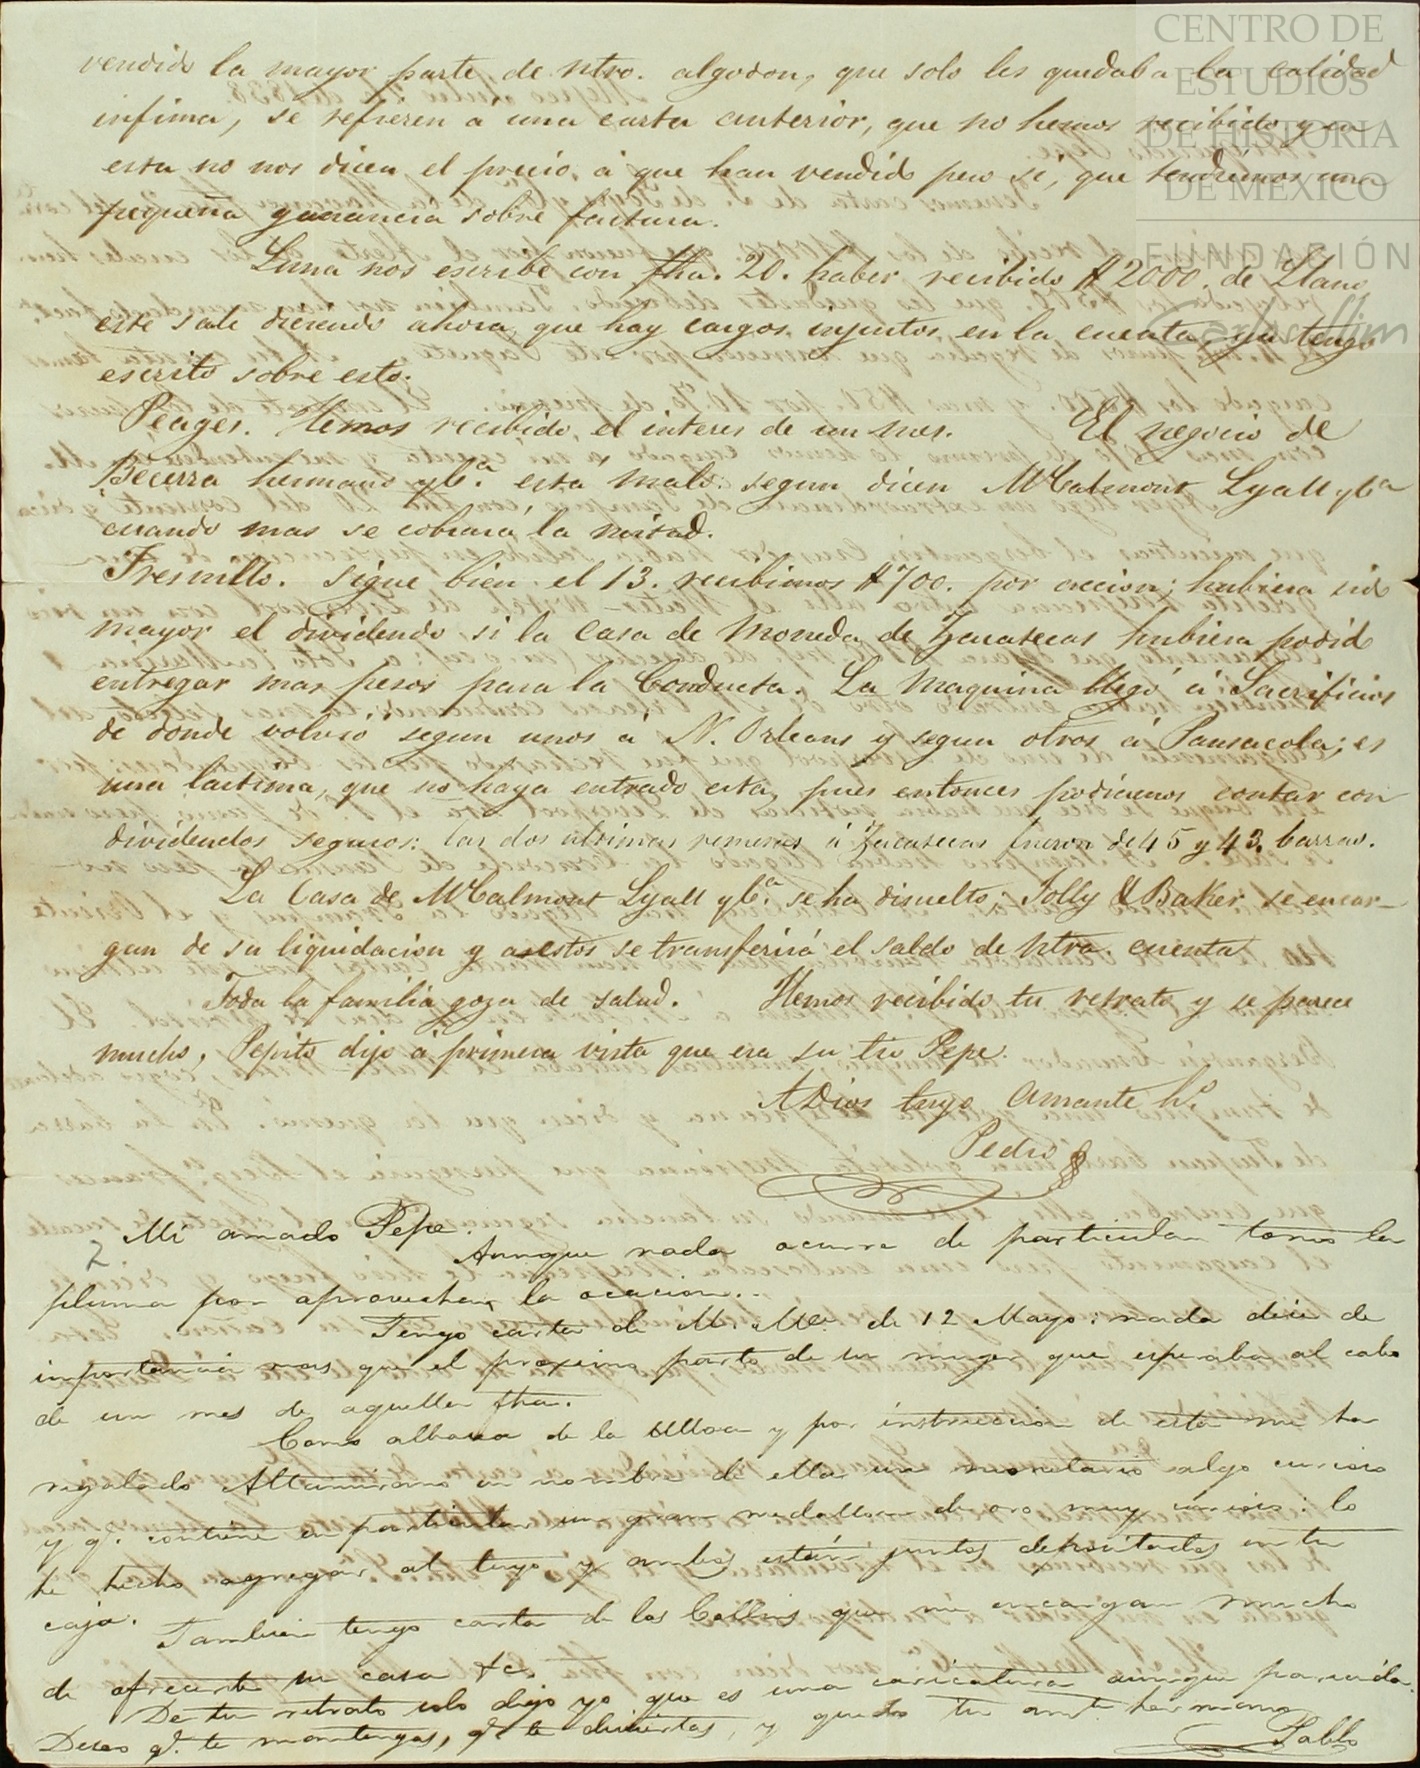 CENTRO DE
ESTUDIOS
DE HISTORIA
DE MEXICO
FUNDACIÓN
Carlos Slim
vendido la mayor parte de ntro. algodon, que solo les quedaba la calidad
infima, se refieren a una carta anterior, que no hemos recibido y en
esta no nos dicen el precio á que han vendido pero si, que tendriamos una
pequeña ganancia sobre factura.
Luna nos escribe con fha. 20. haber recibido $2000. de Llano
este sale diciendo ahora que hay cargos injustos en la cuenta, ya tengo
escrito sobre esto.
Peages. Hemos recibido el interes de un mes. El negocio de
Becerra hermano y Ca. esta malo: segun dicen McCalmont Lyall y Ca
cuando mas se cobrará la mitad.
Fresnillo. Sigue bien el 13. recibimos $700. por accion; hubiera sido
mayor el dividendo si la Casa de Moneda de Zacatecas hubiera podido
entregar mas pesos para la Conducta. La Maquina llegó á Sacrificios
de donde volvió segun unos á N. Orleans y segun otros á Pansacola; es
una lastima, que no haya entrado esta, pues entonces podriamos contar con
dividendos seguros: las dos ultimas remesas á Zacatecas fueron de 45 y 43. barras.
La Casa de McCalmont Lyall y Ca. se ha disuelto; Jolly & Baker se encar-
gan de su liquidacion y a estos se transferirá el saldo de ntra. cuenta
Toda la familia goza de salud. Hemos recibido tu retrato y se parece
mucho, Pepito dijo á primera vista que era su tio Pepe.
ADios tuyo Amante ho.
Pedro
Mi amado Pepe.
2
Aunque nada ocurre de particular tomo la
pluma por aprovechar la ocacion.
Tengo carta de M. de 12 Mayo: nada dice de
importancia mas que el proximo parto de su muger que esperaba al cabo
de un mes de aquella fha.
Como albacea de la Ulloa y por instruccion de esta me ha
regalado Altamirano en nombre de ella un monetario algo curioso
y q. contiene en particular un gran medallon de oro muy curioso: lo
he hecho agregar al tuyo y ambos están juntos depositados en tu
caja.
Tambien tengo carta de los Collins que me encargan mucho
de ofrecerte su casa &c.
De tu retrato solo digo yo que es una caricatura aunque parecida.
Deseo q. te mantengas, q. te diviertas, y quedo tu amte hermano
Pablo